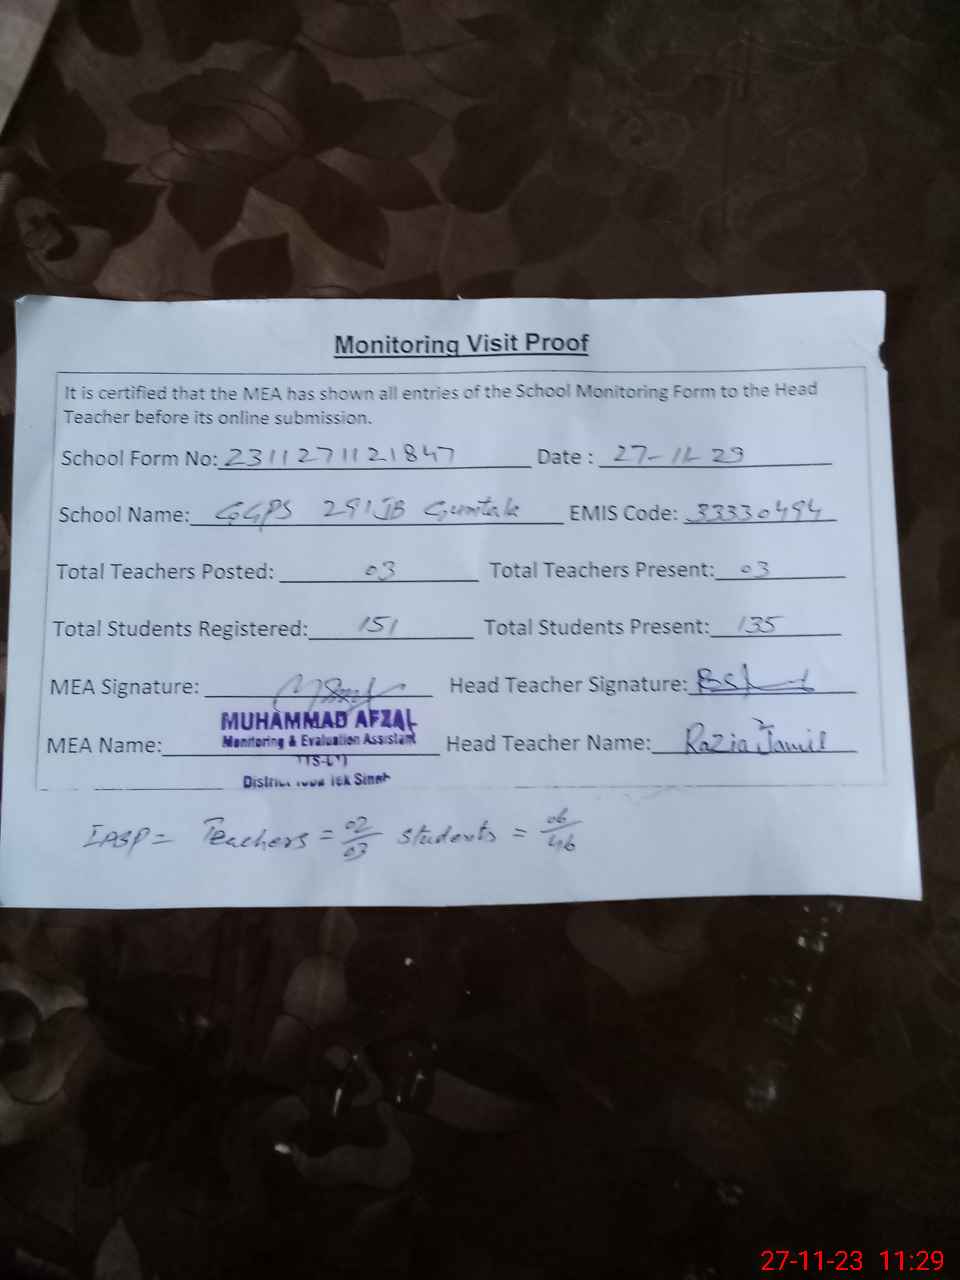 Monitoring Visit Proof
It is certified that the MEA has shown all entries of the School Monitoring Form to the Head
Teacher before its online submission.
School Form No: 2311271121847 Date : 27-11-23
School Name: GGPS 291JB Gumtala EMIS Code: 33330494
Total Teachers Posted: 03 Total Teachers Present: 03
Total Students Registered: 151 Total Students Present: 135
MEA Signature: Head Teacher Signature:
MUHAMMAD AFZAL
Monitoring & Evaluation Assistant
MEA Name: Head Teacher Name: Razia Jamil
District Tek Singh
Teachers = 02/03 Students = 06/46
27-11-23 11:29